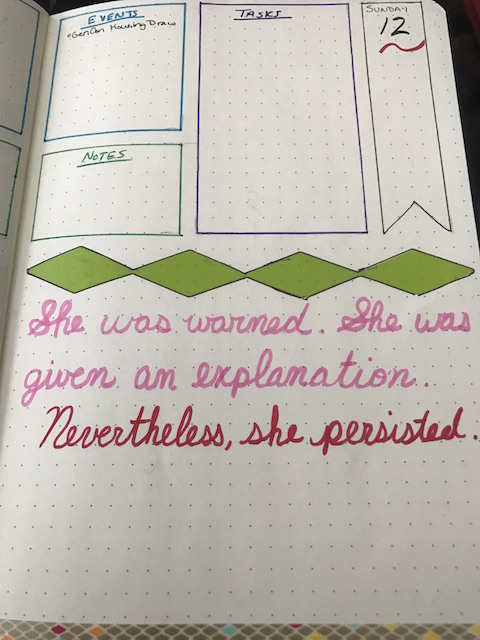 EVENTS
GenCon Housing Draw
NOTES
TASKS
SUNDAY
12
She was warned. She was
given an explanation.
Nevertheless, she persisted.